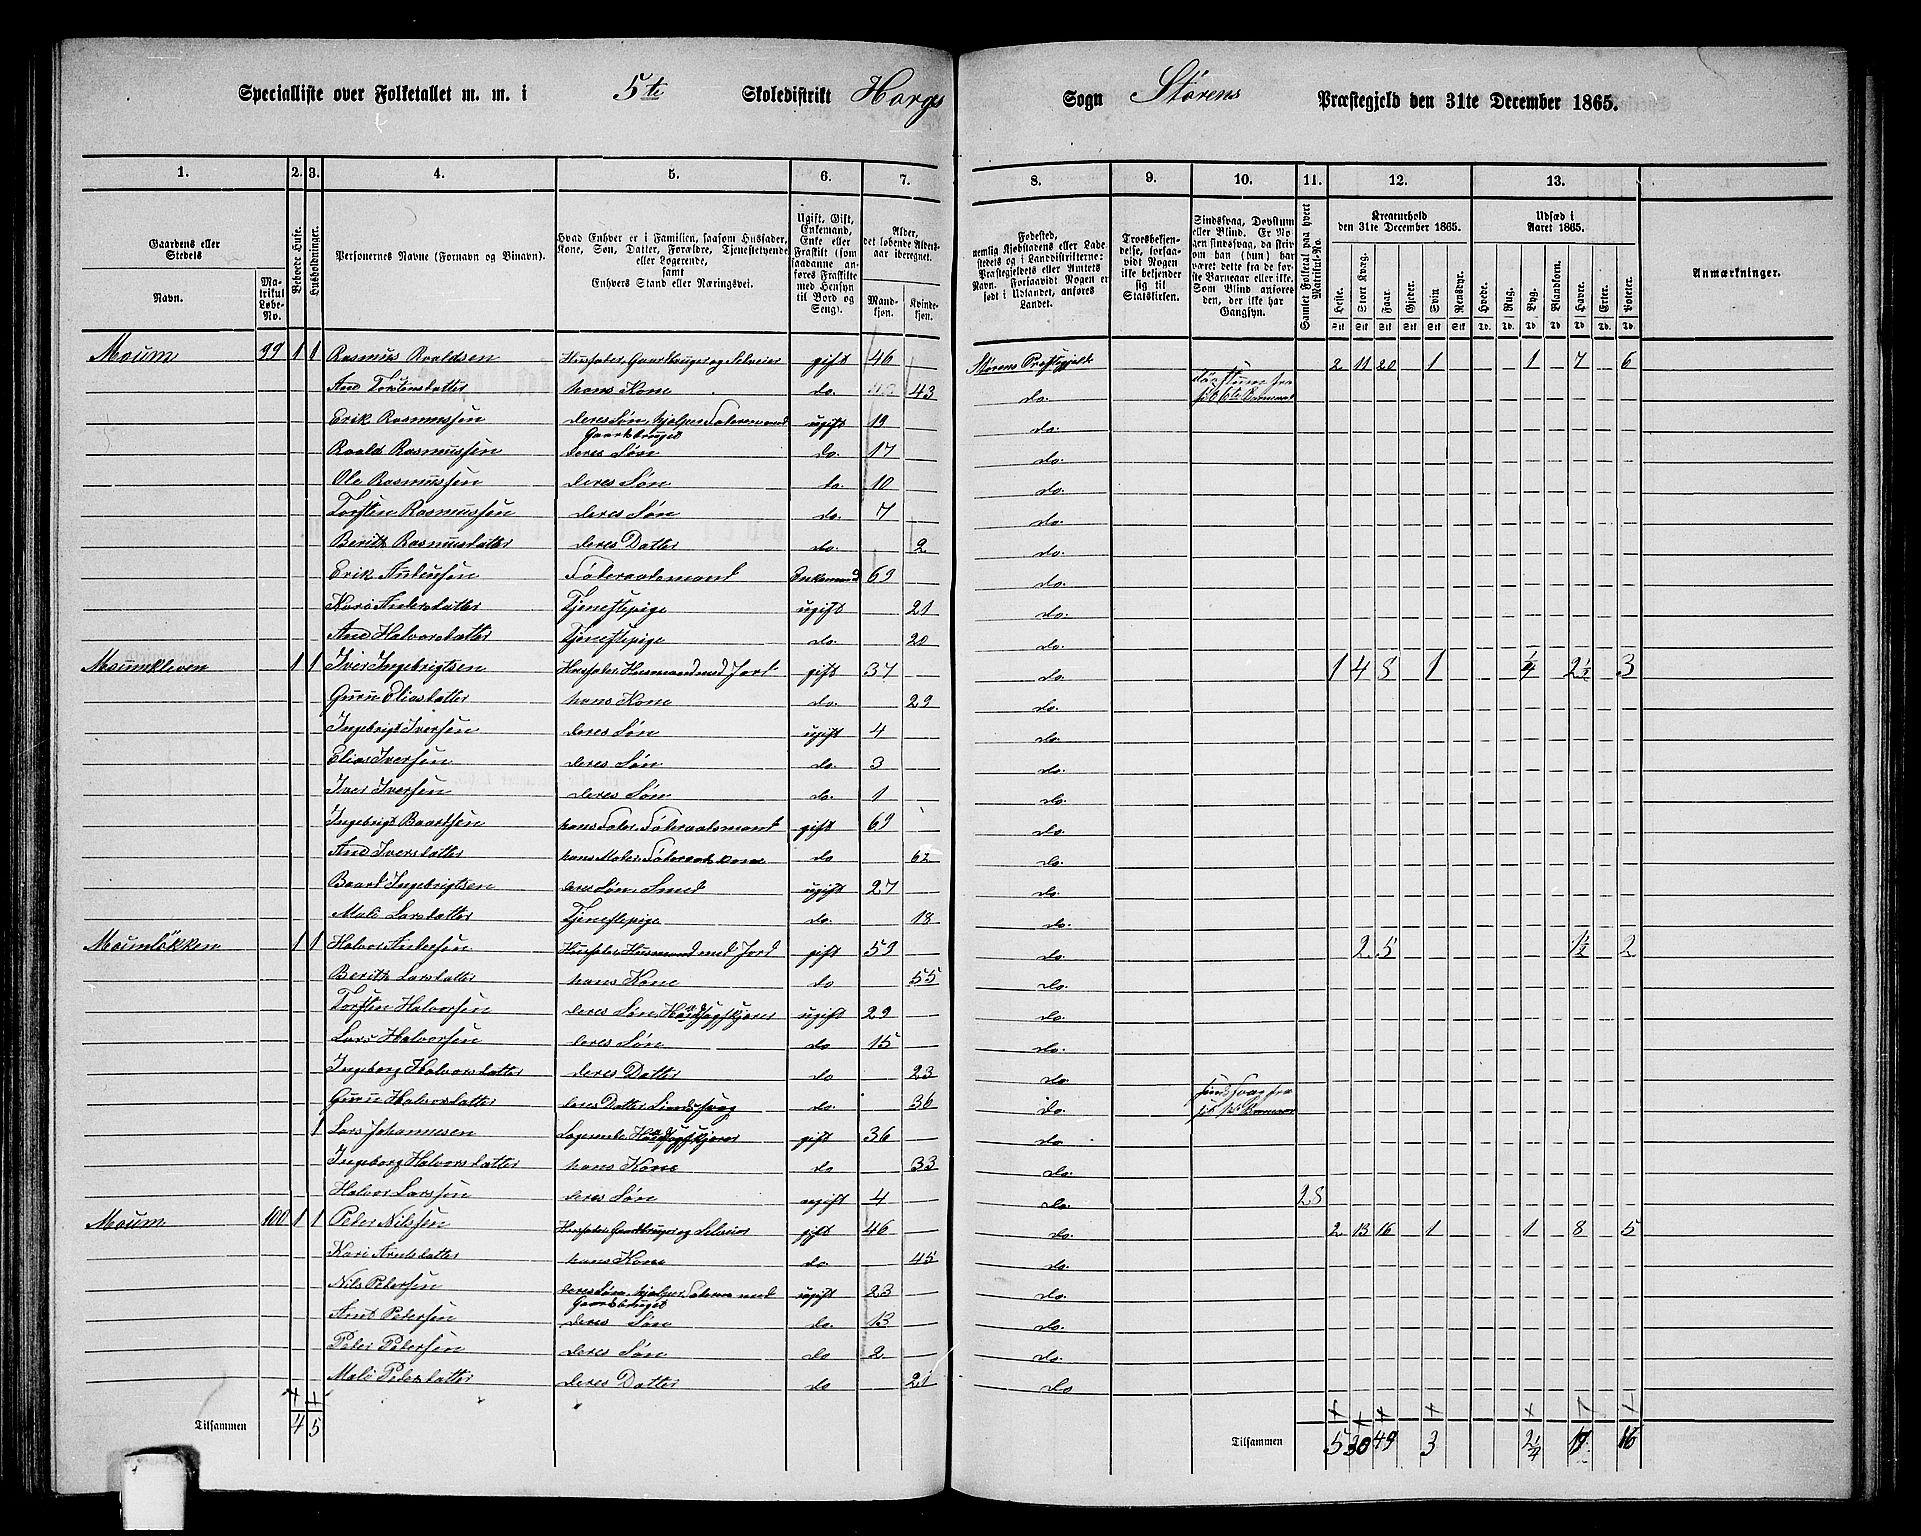 Specialliste over Folketallet m. m. i 5te Skoledistrikt Horgs Sogn Størens Præstegjeld den 31te December 1865.
1. 2. 3. 4. 5. 6. 7. 8. 9. 10. 11. 12. 13.
Gaardens eller Stedets Navn. Matrikul Løbe-No. Beboede Huse. Husholdninger. Personernes Navne (Fornavn og Tilnavn). Hvad Enhver er i Familien, saasom Husfader, Kone, Søn, Datter, Forældre, Tjenestetyende eller Logerende, samt Enhvers Stand eller Næringsvei. Ugift, Gift, Enkemand, Enke eller Fraskilt (som saadanne anføres Fraskilte med Hensyn til Bord og Seng). Alder, det løbende Alders-aar iberegnet. Mandkjøn. Kvindekjøn.
Fødested, nemlig Kjøbstadens eller Ladestedets og i Landdistrikterne: Præstegjeldets eller Amtets Navn. Forsaavidt Nogen er født i Udlandet, anføres Landet. Troesbekjendelse, forsaavidt Nogen ikke bekjender sig til Statskirken. Sindssvag, Døvstum eller Blind. Er Nogen sindssvag, da skrives om han (hun) har været dette fra de første Barneaar eller ikke. Som Blind anføres den, der ikke har Gangsyn. Samlet Folketal paa hvert Matrikul-No. Kreaturhold den 31te December 1865. Heste. Stort Kvæg. Faar. Gjeder. Svin. Rensdyr. Udsæd i Aaret 1865. Hvede. Rug. Byg. Blandkorn. Havre. Erter. Poteter. Anmærkninger.
Moum 99 1 1 Rasmus Roaldsen Husfader, Gaardbruger og Selveier gift 46 Størens Præstegjeld 2 11 20 1 1 7 6
Ane Torstensdatter hans Kone do. 43 do. døvstum fra
Erik Rasmussen deres Søn, hjelper Faderen med Gaardsbruget ugift 19 do.
Roald Rasmussen deres Søn do. 17 do.
Ole Rasmussen deres Søn do. 10 do.
Torsten Rasmussen deres Søn do. 7 do.
Berith Rasmusdatter deres Datter do. 2 do.
Erik Andersen Føderaadsmand Enkemand 69 do.
Kari Andersdatter Tjenestepige ugift 21 do.
Ane Halvorsdatter Tjenestepige do. 20 do.
Moumkleven 1 1 Iver Ingebrigtsen Husfader, Husmand med Jord gift 37 do. 1 4 8 1 1/4 2 1/2 3
Guru Eliasdatter hans Kone do. 29 do.
Ingebrigt Iversen deres Søn ugift 4 do.
Elias Iversen deres Søn do. 3 do.
Iver Iversen deres Søn do. 1 do.
Ingebrigt Baardsen hans Fader, Føderaadsmand gift 69 do.
Ane Iversdatter hans Moder, Føderaadskone do 62 do.
Baard Ingebrigtsen deres Søn, Smed ugift 27 do.
Mali Larsdatter Tjenestepige do. 18 do.
Moumløkken 1 1 Halvor Andersen Husfader, Husmand med Jord gift 59 do. 2 5 1 1/2 2
Berith Larsdatter hans Kone do 55 do.
Torsten Halvorsen deres Søn ugift 29 do.
Lars Halvorsen deres Søn do 15 do.
Ingeborg Halvorsdatter deres Datter do 23 do.
Guru Halvorsdatter deres Datter Sindssvag do 36 do. sindssvag fra
1 Lars Johannesen Logerende gift 36 do.
Ingeborg Halvorsdatter hans Kone do 33 do.
Halvor Larssen deres Søn ugift 4 do. 28
Moum 100 1 1 Peter Nilssen Husfader, Gaardbruger og Selveier gift 46 do. 2 13 16 1 1 8 5
Kari Arntsdatter hans Kone do. 45 do.
Nils Petersen deres Søn, hjelper Faderen med Gaardsbruget ugift 23 do.
Arnt Petersen deres Søn do. 13 do.
Peter Petersen deres Søn do 2 do.
Mali Petersdatter deres Datter do 21 do
Tilsammen 4 5 Tilsammen 5 30 49 3 2 1/4 16